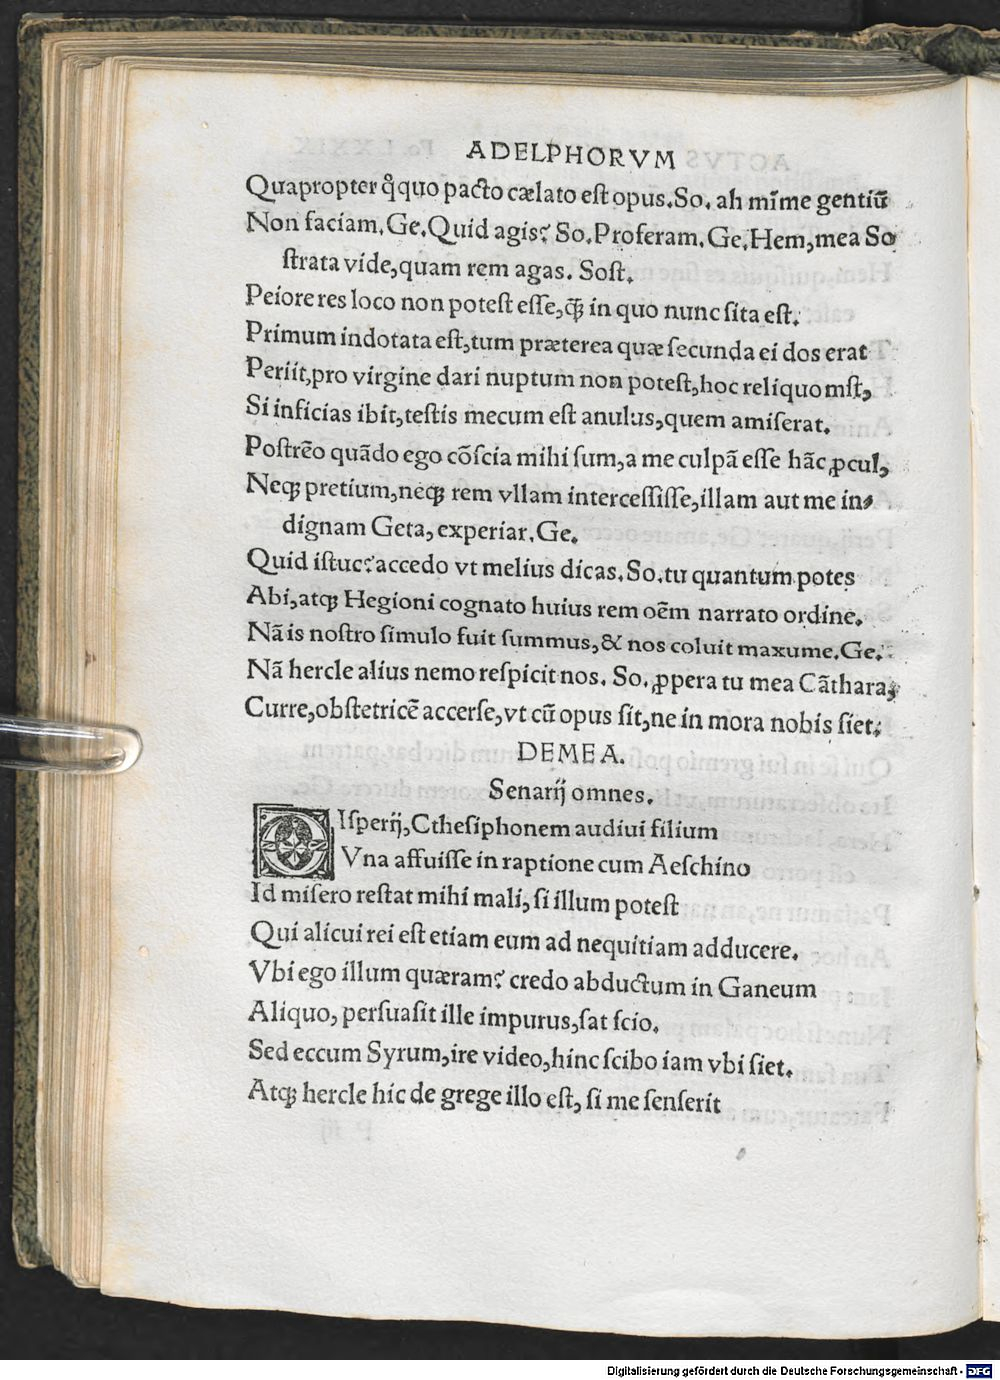 ADELPHORVM
Quapropter q̃quo pacto cælato eſt opus. So. ah mĩme gentiũ
Non faciam. Ge. Quid agis? So. Proferam. Ge. Hem, mea So
ſtrata vide, quam rem agas. Soſt.
Peiore res loco non poteſt eſſe, q̃ in quo nunc ſita eſt.
Primum indotata eſt, tum præterea quæ ſecunda ei dos erat
Periit, pro virgine dari nuptum non poteſt, hoc reliquo mſt,
Si inficias ibit, teſtis mecum eſt anulus, quem amiſerat.
Poſtrẽo quãdo ego cõſcia mihi ſum, a me culpã eſſe hãc ꝓcul,
Neqꝫ pretium, neqꝫ rem vllam interceſſiſſe, illam aut me in-
dignam Geta, experiar. Ge.
Quid iſtuc? accedo vt melius dicas. So. tu quantum potes
Abi, atqꝫ Hegioni cognato huius rem oẽm narrato ordine.
Nã is noſtro ſimulo fuit ſummus, & nos coluit maxume. Ge.
Nã hercle alius nemo reſpicit nos. So. ꝓpera tu mea Cãthara,
Curre, obſtetricẽ accerſe, vt cũ opus ſit, ne in mora nobis ſiet.
DEMEA.
Senarij omnes.
DIſperij, Ctheſiphonem audiui filium
Vna affuiſſe in raptione cum Aeſchino
Id miſero reſtat mihi mali, ſi illum poteſt
Qui alicui rei eſt etiam eum ad nequitiam adducere.
Vbi ego illum quæram? credo abductum in Ganeum
Aliquo, perſuaſit ille impurus, ſat ſcio.
Sed eccum Syrum, ire video, hinc ſcibo iam vbi ſiet.
Atqꝫ hercle hic de grege illo eſt, ſi me ſenſerit
Digitalisierung gefördert durch die Deutsche Forschungsgemeinschaft - DFG